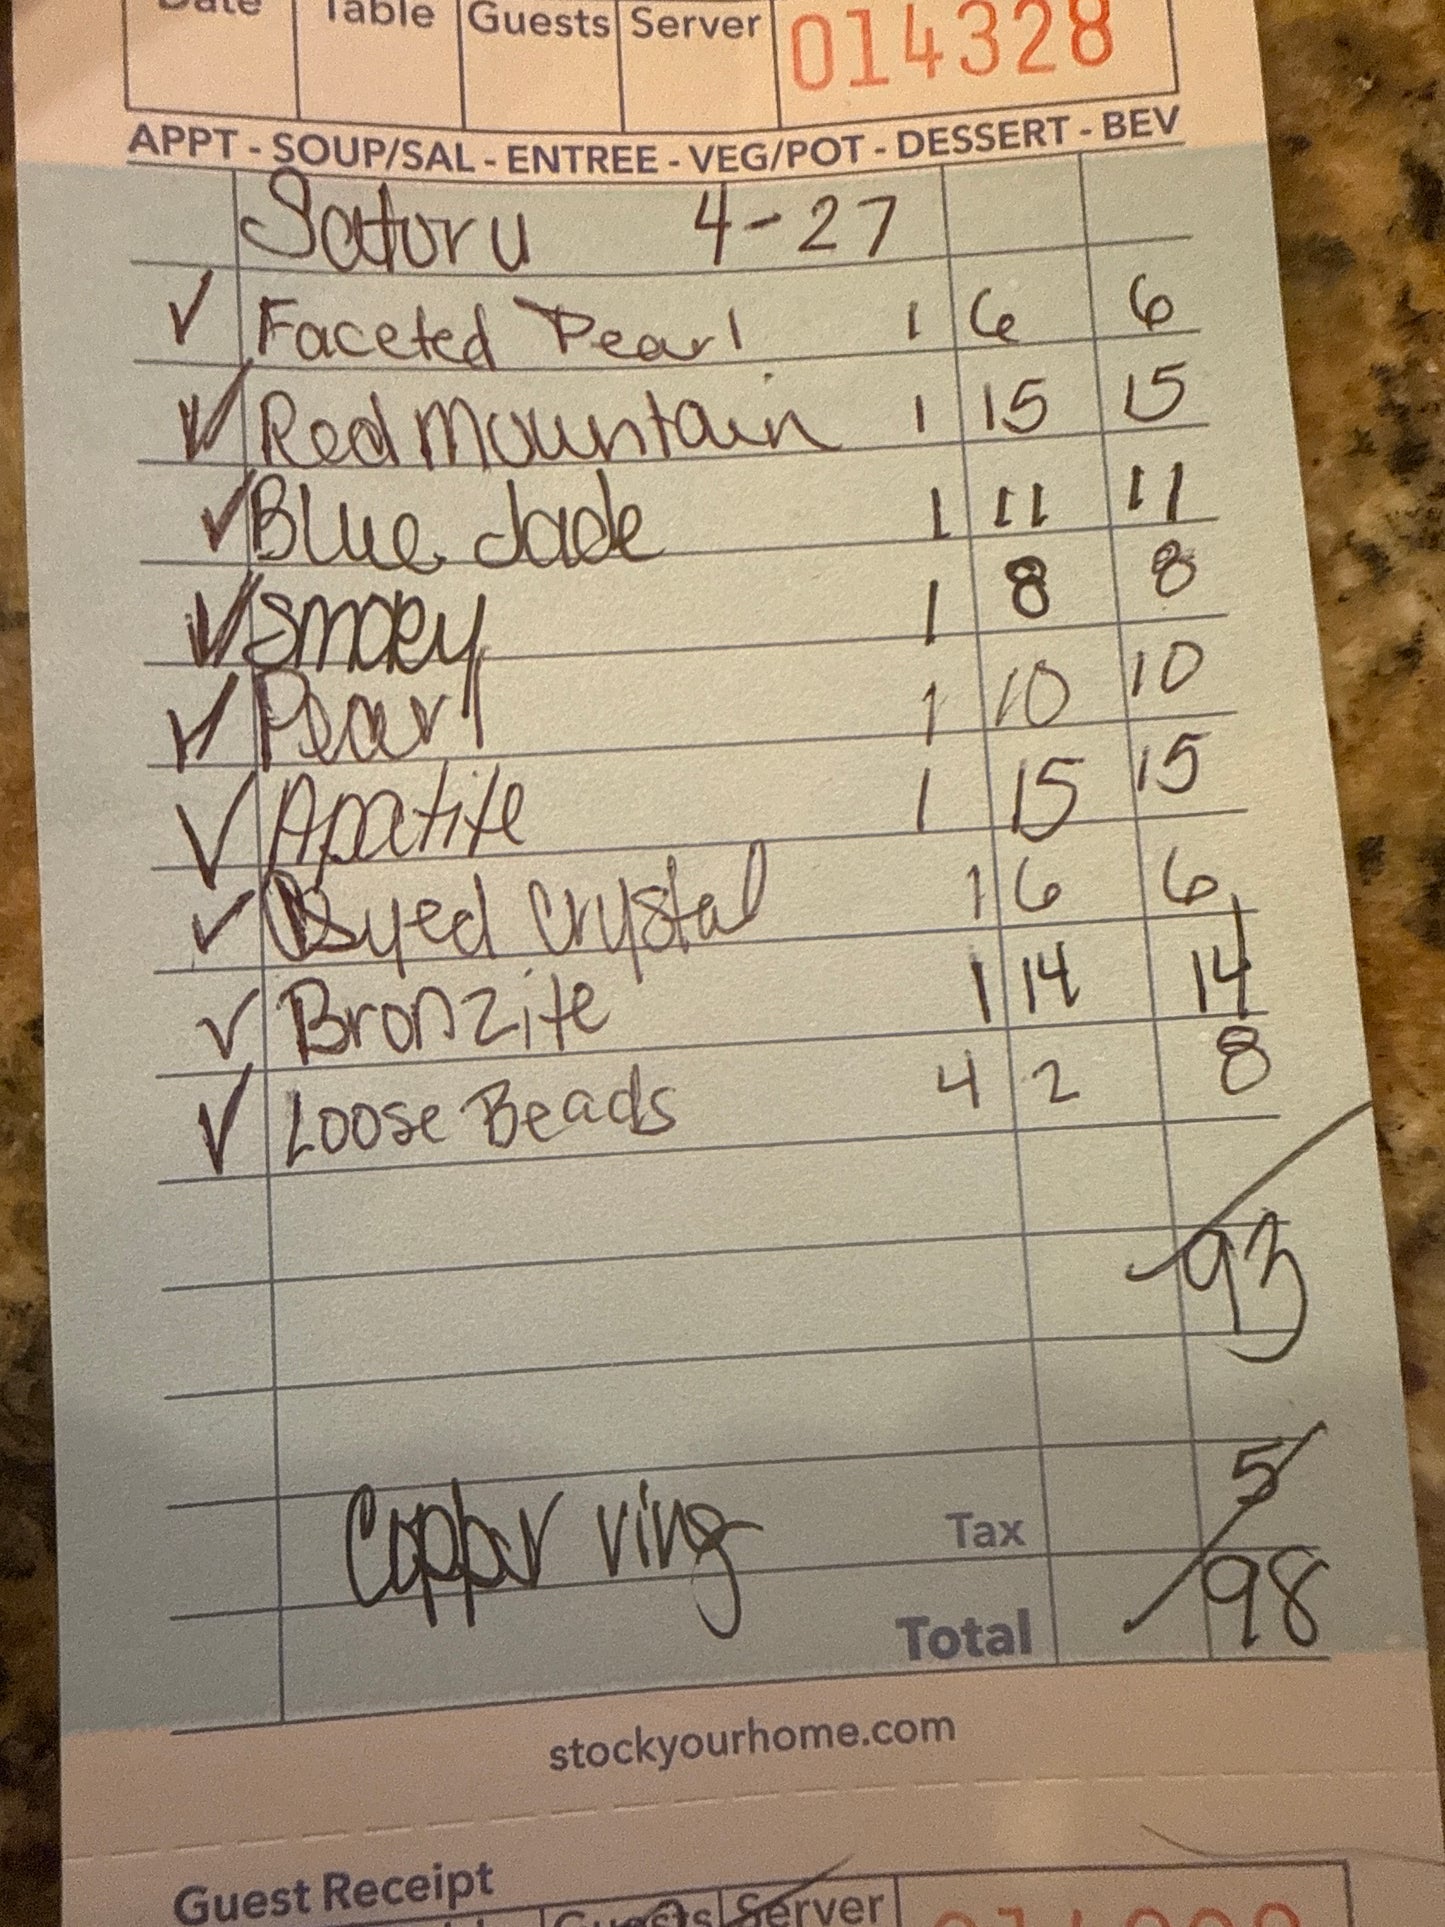 Date Table Guests Server 014328
APPT - SOUP/SAL - ENTREE - VEG/POT - DESSERT - BEV
Satoru 4-27
✓ Faceted Pearl 1 6 6
✓ Red Mountain 1 15 15
✓ Blue Jade 1 11 11
✓ Smokey 1 8 8
✓ Pearl 1 10 10
✓ Apatite 1 15 15
✓ Dyed Crystal 1 6 6
✓ Bronzite 1 14 14
✓ Loose Beads 4 2 8
93
5
Copper ring Tax
Total 98
stockyourhome.com
Guest Receipt
Guests Server